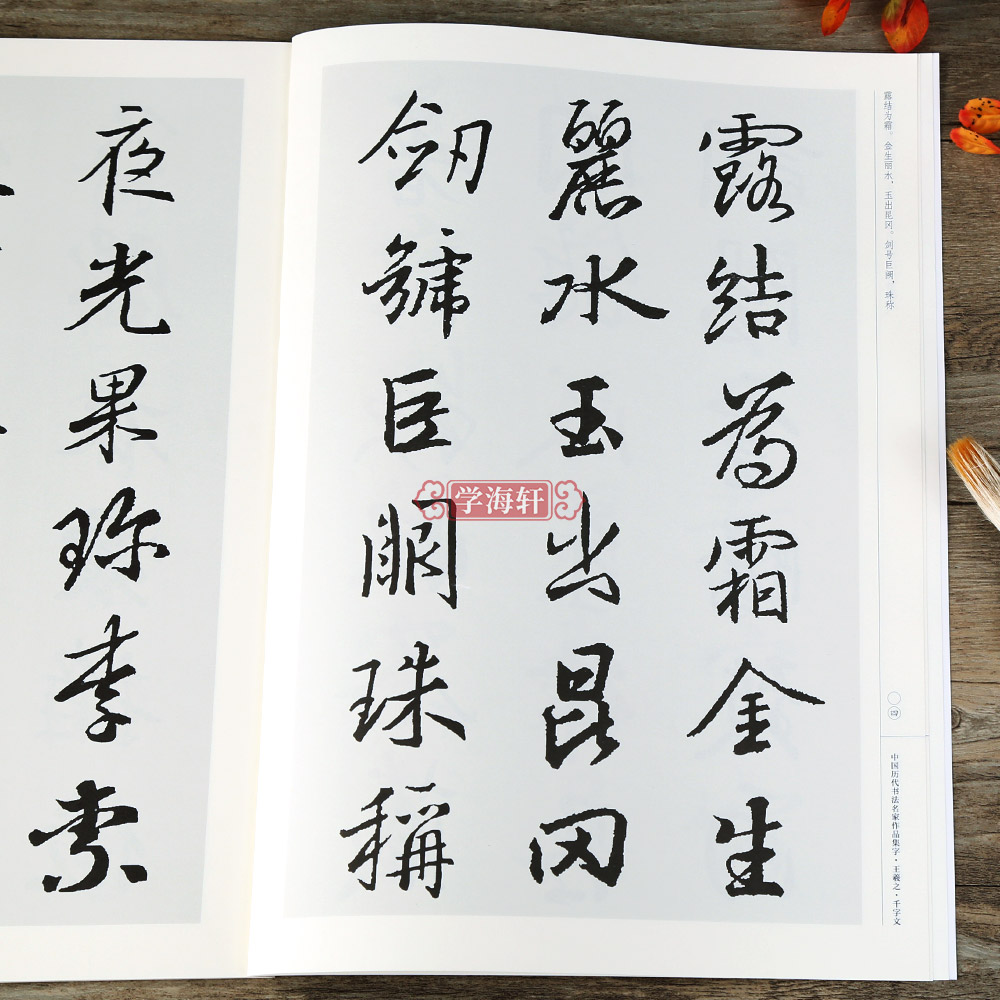 露結為霜金生
麗水玉出昆冈
劒號巨闕珠稱
夜光果珍李柰
露结为霜。金生丽水，玉出昆冈。剑号巨阙，珠称
〇四
中国历代书法名家作品集字·王羲之·千字文
学海轩